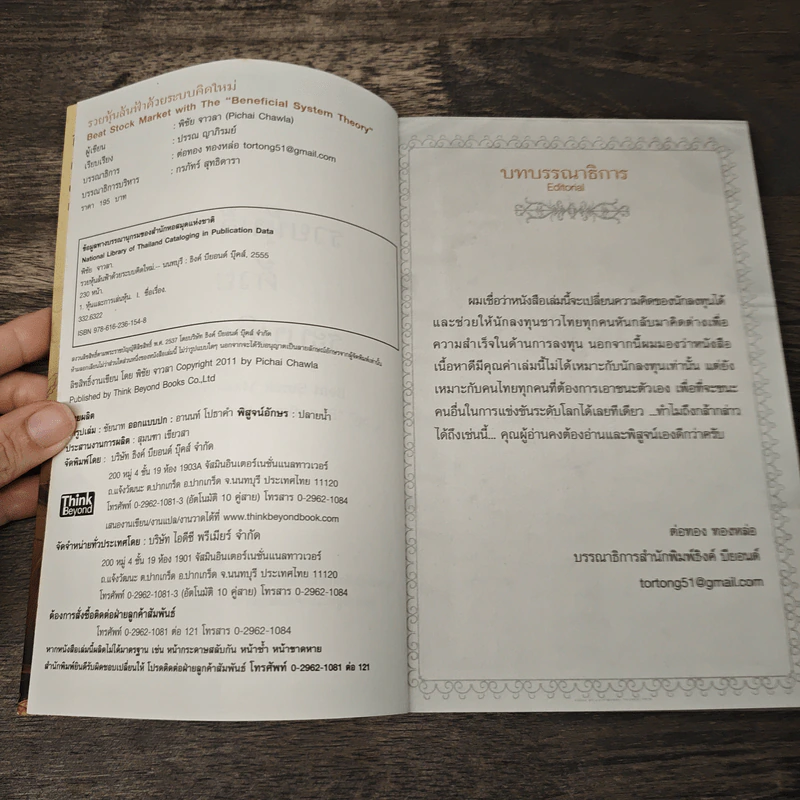 รวยหุ้นล้นฟ้าด้วยระบบคิดใหม่
Beat Stock Market with The "Beneficial System Theory"
ผู้เขียน : พิชัย จาวลา (Pichai Chawla)
เรียบเรียง : ปรรณ ญาภิรมย์
บรรณาธิการ : ต่อทอง ทองหล่อ tortong51@gmail.com
บรรณาธิการบริหาร : กรภัทร์ สุทธิดารา
ราคา 195 บาท
ข้อมูลทางบรรณานุกรมของสำนักหอสมุดแห่งชาติ
National Library of Thailand Cataloging in Publication Data
พิชัย จาวลา.
รวยหุ้นล้นฟ้าด้วยระบบคิดใหม่.-- นนทบุรี : ธิงค์ บียอนด์ บุ๊คส์, 2555
230 หน้า.
1. หุ้นและการเล่นหุ้น. I. ชื่อเรื่อง.
332.6322
ISBN 978-616-236-154-8
สงวนลิขสิทธิ์ตามพระราชบัญญัติลิขสิทธิ์ พ.ศ. 2537 โดยบริษัท ธิงค์ บียอนด์ บุ๊คส์ จำกัด
ห้ามลอกเลียนไม่ว่าส่วนใดส่วนหนึ่งของหนังสือเล่มนี้ ไม่ว่ารูปแบบใดๆ นอกจากจะได้รับอนุญาตเป็นลายลักษณ์อักษรจากผู้จัดพิมพ์เท่านั้น
ลิขสิทธิ์งานเขียน โดย พิชัย จาวลา Copyright 2011 by Pichai Chawla
Published by Think Beyond Books Co.,Ltd
ผลิต
รูปเล่ม : ชัยนาท ออกแบบปก : อานนท์ โปธาคำ พิสูจน์อักษร : ปลายน้ำ
ประสานงานการผลิต : สุมนฑา เขียวสา
จัดพิมพ์โดย : บริษัท ธิงค์ บียอนด์ บุ๊คส์ จำกัด
200 หมู่ 4 ชั้น 19 ห้อง 1903A จัสมินอินเตอร์เนชั่นแนลทาวเวอร์
ถ.แจ้งวัฒนะ ต.ปากเกร็ด อ.ปากเกร็ด จ.นนทบุรี ประเทศไทย 11120
Think Beyond
โทรศัพท์ 0-2962-1081-3 (อัตโนมัติ 10 คู่สาย) โทรสาร 0-2962-1084
เสนองานเขียน/งานแปล/งานวาดได้ที่ www.thinkbeyondbook.com
จัดจำหน่ายทั่วประเทศโดย : บริษัท ไอดีซี พรีเมียร์ จำกัด
200 หมู่ 4 ชั้น 19 ห้อง 1901 จัสมินอินเตอร์เนชั่นแนลทาวเวอร์
ถ.แจ้งวัฒนะ ต.ปากเกร็ด อ.ปากเกร็ด จ.นนทบุรี ประเทศไทย 11120
โทรศัพท์ 0-2962-1081-3 (อัตโนมัติ 10 คู่สาย) โทรสาร 0-2962-1084
ต้องการสั่งซื้อติดต่อฝ่ายลูกค้าสัมพันธ์
โทรศัพท์ 0-2962-1081 ต่อ 121 โทรสาร 0-2962-1084
หากหนังสือเล่มนี้ผลิตไม่ได้มาตรฐาน เช่น หน้ากระดาษสลับกัน หน้าซ้ำ หน้าขาดหาย
สำนักพิมพ์ยินดีรับผิดชอบเปลี่ยนให้ โปรดติดต่อฝ่ายลูกค้าสัมพันธ์ โทรศัพท์ 0-2962-1081 ต่อ 121
บทบรรณาธิการ
Editorial
ผมเชื่อว่าหนังสือเล่มนี้จะเปลี่ยนความคิดของนักลงทุนได้
และช่วยให้นักลงทุนชาวไทยทุกคนหันกลับมาคิดต่างเพื่อ
ความสำเร็จในด้านการลงทุน นอกจากนี้ผมมองว่าหนังสือ
เนื้อหาดีมีคุณค่าเล่มนี้ไม่ได้เหมาะกับนักลงทุนเท่านั้น แต่ยัง
เหมาะกับคนไทยทุกคนที่ต้องการเอาชนะตัวเอง เพื่อที่จะชนะ
คนอื่นในการแข่งขันระดับโลกได้เลยทีเดียว ...ทำไมถึงกล้ากล่าว
ได้ถึงเช่นนี้... คุณผู้อ่านคงต้องอ่านและพิสูจน์เองดีกว่าครับ
ต่อทอง ทองหล่อ
บรรณาธิการสำนักพิมพ์ธิงค์ บียอนด์
tortong51@gmail.com